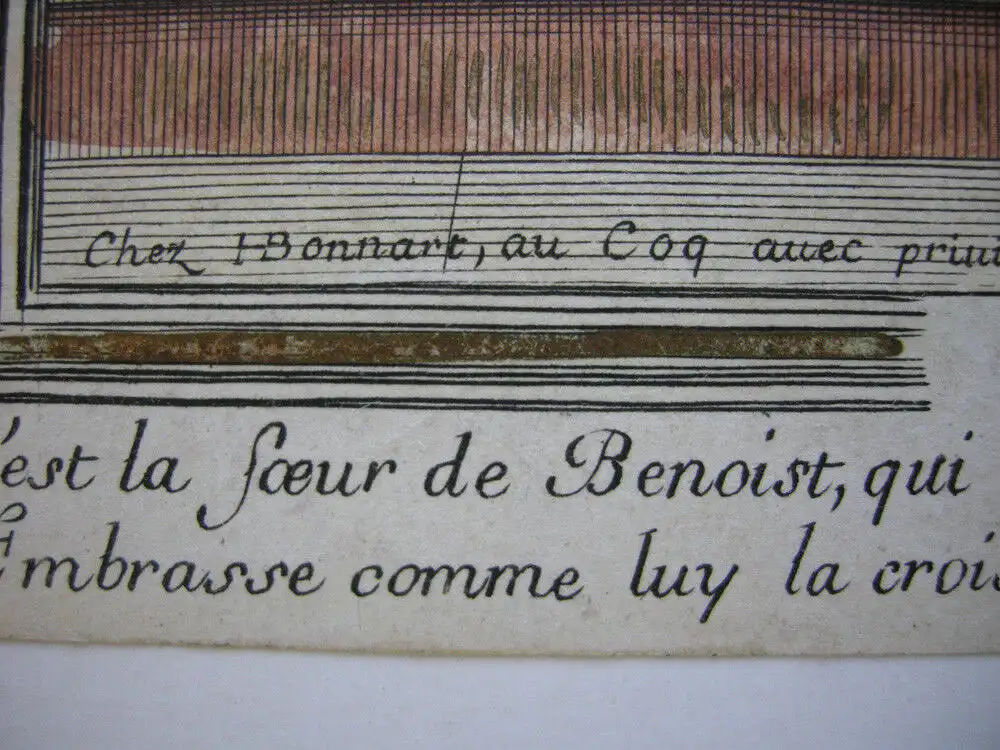 Chez H Bonnart, au Coq auec priui
'est la ſœur de Benoist, qui
Embrasse comme luy la crois